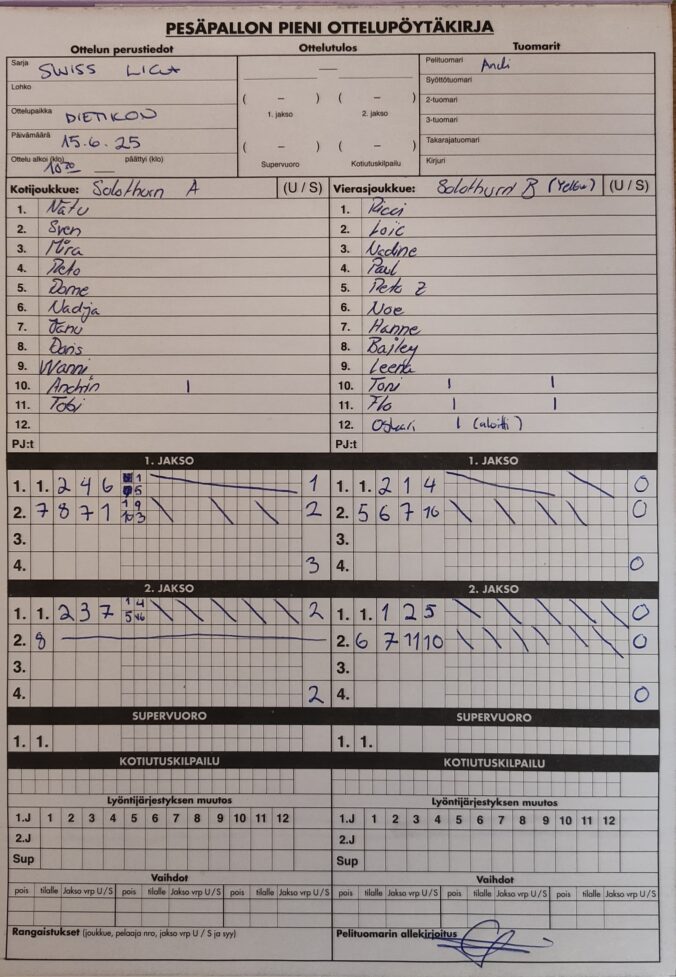 PESÄPALLON PIENI OTTELUPÖYTÄKIRJA
Ottelun perustiedot Ottelutulos Tuomarit
Sarja SWISS LIGA
Lohko
Ottelupaikka DIETIKON
Päivämäärä 15.6.25
Ottelu alkoi (klo) 10 20 päättyi (klo)
—
( – ) ( – )
1. jakso 2. jakso
( – ) ( – )
Supervuoro Kotiutuskilpailu
Pelituomari Andi
Syöttötuomari
2-tuomari
3-tuomari
Takarajatuomari
Kirjuri
Kotijoukkue: Solothurn A (U / S)
1. Natu
2. Sven
3. Mira
4. Reto
5. Dome
6. Nadja
7. Janu
8. Doris
9. Wanni
10. Andrin I
11. Tobi
12.
PJ:t
Vierasjoukkue: Solothurn B (Yellow) (U / S)
1. Ricci
2. Loic
3. Nadine
4. Paul
5. Reto Z
6. Noe
7. Hanne
8. Bailey
9. Leena
10. Toni I I
11. Flo I I
12. Oskari I (aloitti)
PJ:t
1. JAKSO
1. 1. 2 4 6 1 5 1
2. 7 8 7 1 1 9 10 3 2
3.
4. 3
1. JAKSO
1. 1. 2 1 4 0
2. 5 6 7 10 0
3.
4. 0
2. JAKSO
1. 1. 2 3 7 1 4 5 6 2
2. 8
3.
4. 2
2. JAKSO
1. 1. 1 2 5 0
2. 6 7 11 10 0
3.
4. 0
SUPERVUORO
1. 1.
SUPERVUORO
1. 1.
KOTIUTUSKILPAILU
KOTIUTUSKILPAILU
Lyöntijärjestyksen muutos
1.J 1 2 3 4 5 6 7 8 9 10 11 12
2.J
Sup
Lyöntijärjestyksen muutos
1.J 1 2 3 4 5 6 7 8 9 10 11 12
2.J
Sup
Vaihdot
pois tilalle Jakso vrp U / S pois tilalle Jakso vrp U / S pois tilalle Jakso vrp U / S
Vaihdot
pois tilalle Jakso vrp U / S pois tilalle Jakso vrp U / S pois tilalle Jakso vrp U / S
Rangaistukset (joukkue, pelaaja nro, jakso vrp U / S ja syy)
Pelituomarin allekirjoitus